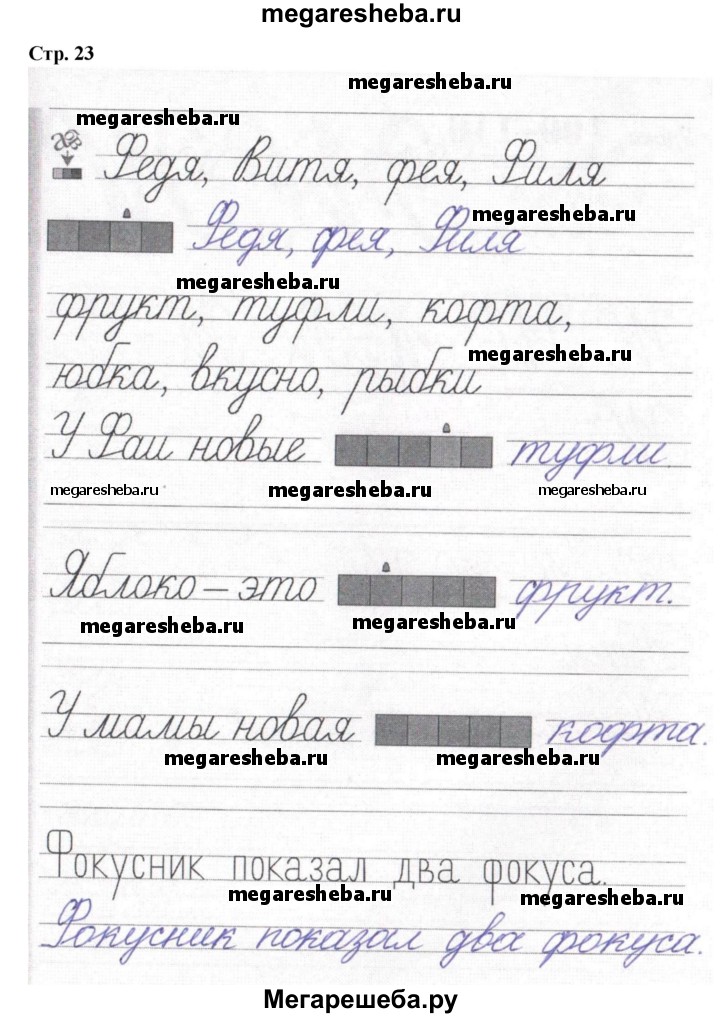 megaresheba.ru
Стр. 23
megaresheba.ru
megaresheba.ru
Федя, Витя, фея, Филя
megaresheba.ru
Федя, фея, Филя
megaresheba.ru
фрукт, туфли, кофта,
megaresheba.ru
юбка, вкусно, рыбки
У Фаи новые туфли
megaresheba.ru megaresheba.ru megaresheba.ru
Яблоко – это фрукт.
megaresheba.ru megaresheba.ru
У мамы новая кофта.
megaresheba.ru megaresheba.ru
Фокусник показал два фокуса.
megaresheba.ru megaresheba.ru
Фокусник показал два фокуса.
Мегарешеба.ру